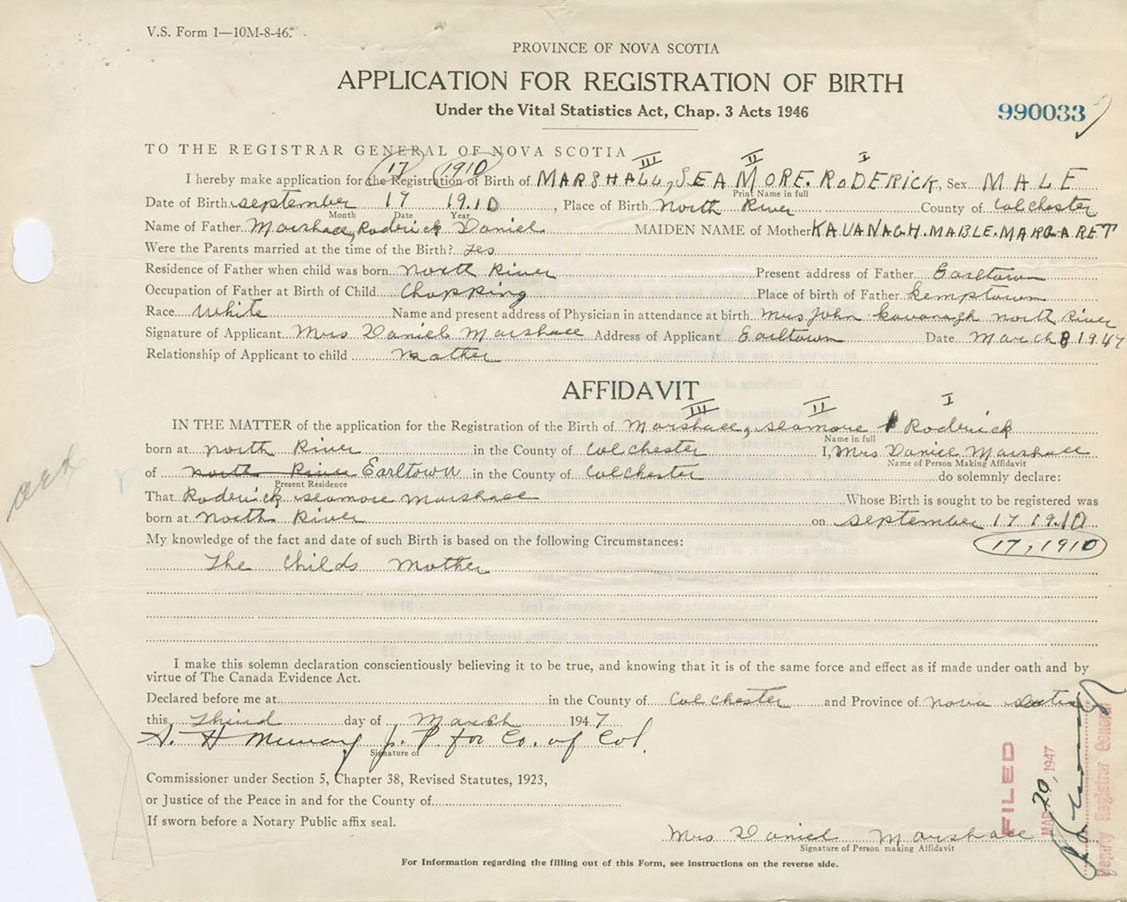 V.S. Form 1—10M-8-46.
PROVINCE OF NOVA SCOTIA
APPLICATION FOR REGISTRATION OF BIRTH
Under the Vital Statistics Act, Chap. 3 Acts 1946
990033
TO THE REGISTRAR GENERAL OF NOVA SCOTIA
17 1910 III II I
I hereby make application for the Registration of Birth of MARSHALL, SEAMORE. RODERICK, Sex MALE
Print Name in full
Date of Birth september 17 1910, Place of Birth North River County of Colchester
Month Date Year
Name of Father Marshall, Roderick Daniel MAIDEN NAME of Mother KAVANAGH. MABLE. MARGARET
Were the Parents married at the time of the Birth? yes
Residence of Father when child was born North River Present address of Father Earltown
Occupation of Father at Birth of Child Chopping Place of birth of Father Kemptown
Race White Name and present address of Physician in attendance at birth Mrs John Kavanagh North River
Signature of Applicant Mrs Daniel Marshall Address of Applicant Earltown Date March 8 1947
Relationship of Applicant to child Mother
AFFIDAVIT
III II I
IN THE MATTER of the application for the Registration of the Birth of Marshall, seamore Roderick
Name in full
born at North River in the County of Colchester I, Mrs Daniel Marshall
Name of Person Making Affidavit
of North River Earltown in the County of Colchester do solemnly declare:
Present Residence
That Roderick seamore Marshall Whose Birth is sought to be registered was
born at North River on september 17 1910
17, 1910
My knowledge of the fact and date of such Birth is based on the following Circumstances:
The Childs Mother
I make this solemn declaration conscientiously believing it to be true, and knowing that it is of the same force and effect as if made under oath and by
virtue of The Canada Evidence Act.
Declared before me at in the County of Colchester and Province of Nova Scotia
this Third day of March 1947
A. H Murray J. P. for Co. of Col.
Signature of
Commissioner under Section 5, Chapter 38, Revised Statutes, 1923,
or Justice of the Peace in and for the County of
If sworn before a Notary Public affix seal.
Mrs Daniel Marshall
Signature of Person making Affidavit
For Information regarding the filling out of this Form, see instructions on the reverse side.
FILED
MAR 20, 1947
Deputy Registrar General